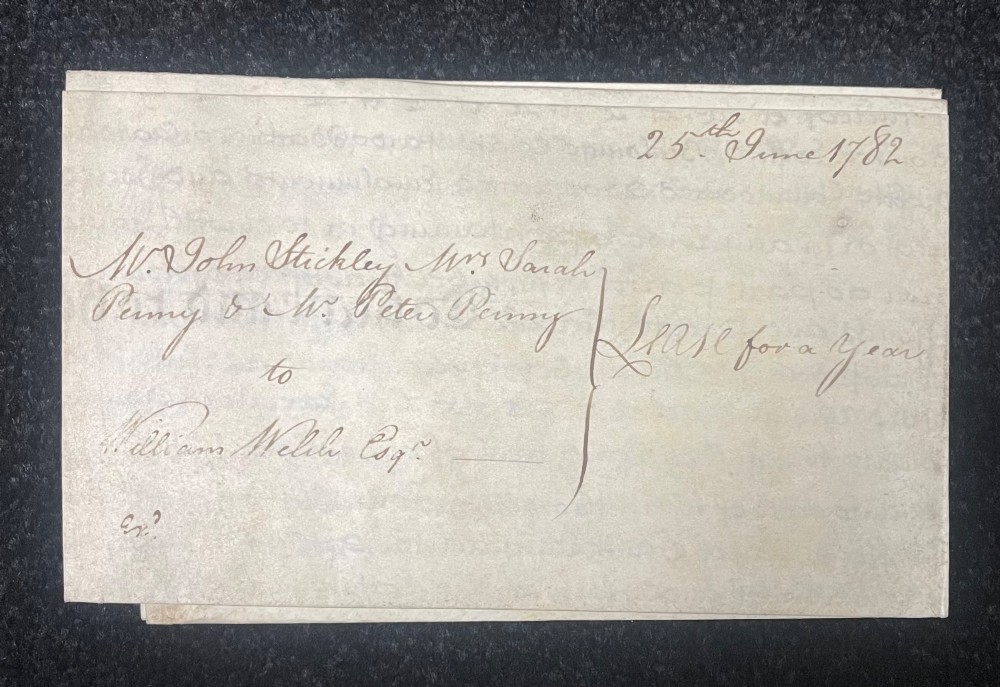 25th. June 1782
Mr. John Stickley Mrs Sarah
Penny & Mr. Peter Penny
to
William Welsh Esqr.
Lease for a Year
Exd.